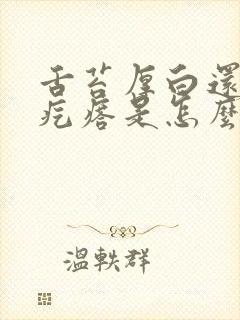 舌苔厚白還
疙瘩是怎麼
溫軼群